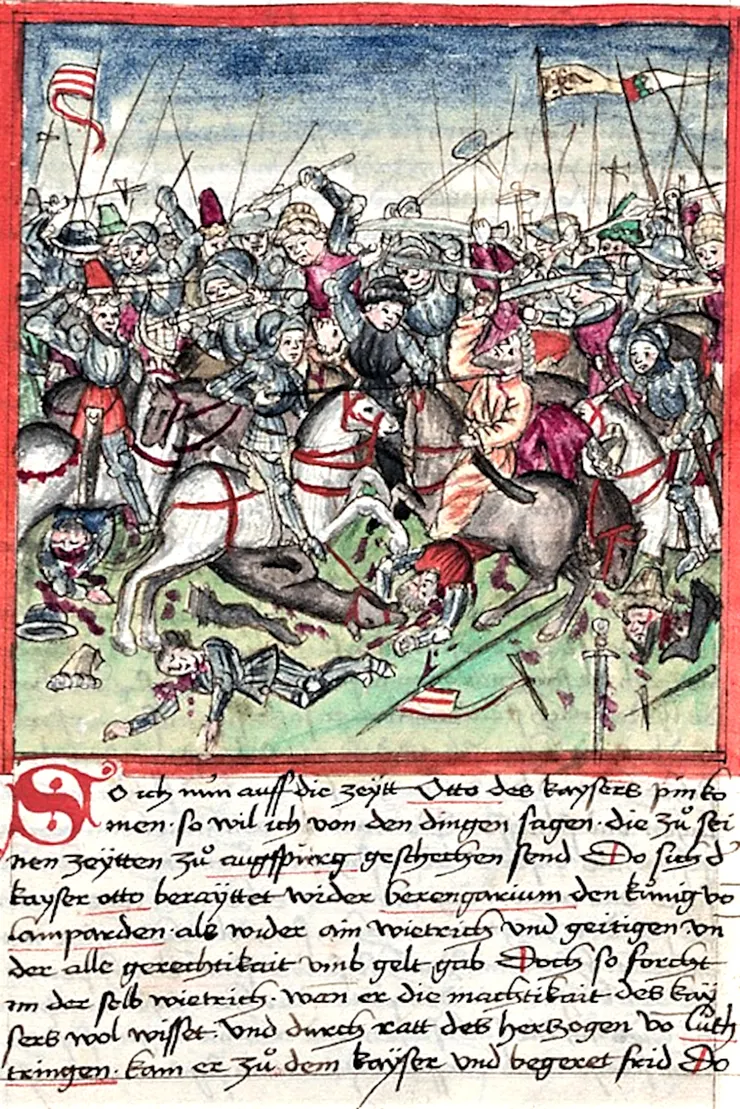 So ich nun auff die zeytt Otto des kaysers pin ko
men · so wil ich von den dingen sagen · die zů sei
nen zeytten zů augspurg geschechen send Do sich d
kayser otto berayttet wider berengarium den kůnig vo
lamparden · als wider ain wietrich vnd geitigen vn
der alle gerechtikait vmb gelt gab Doch so forcht
im der selb wietrich · wan er die machtikait des kay
sers wol wisset · vnd durch ratt des hertzogen vo luth
tringen · kam er zů dem kayser vnd begeret frid Do